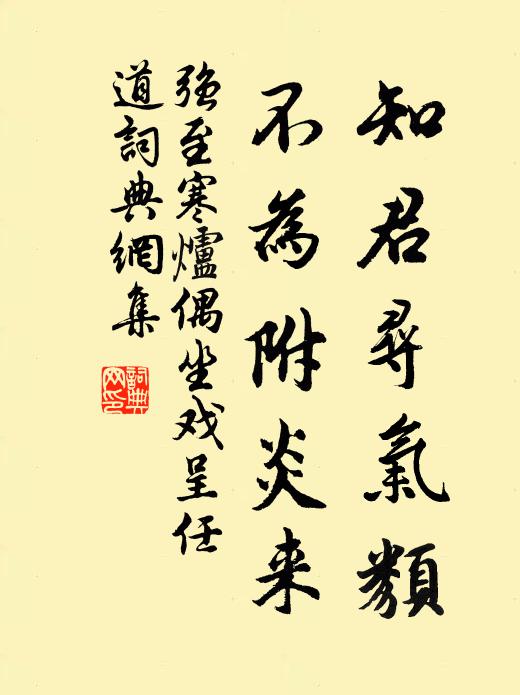 知君尋氣類
不為附炎来
强至寒爐偶坐戏呈任
道詞典網集
詞典網印